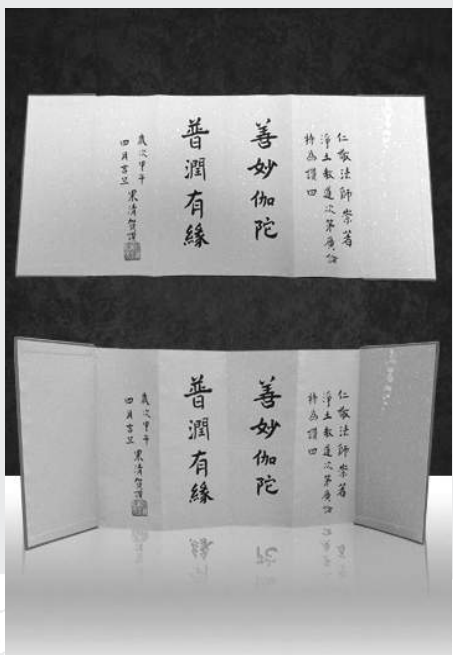 仁敬法師崇著
淨土教道次第廣論
特為讚曰
善妙伽陀
普潤有緣
歲次甲午
四月吉旦 果清賀讚
仁敬法師崇著
淨土教道次第廣論
特為讚曰
善妙伽陀
普潤有緣
歲次甲午
四月吉旦 果清賀讚